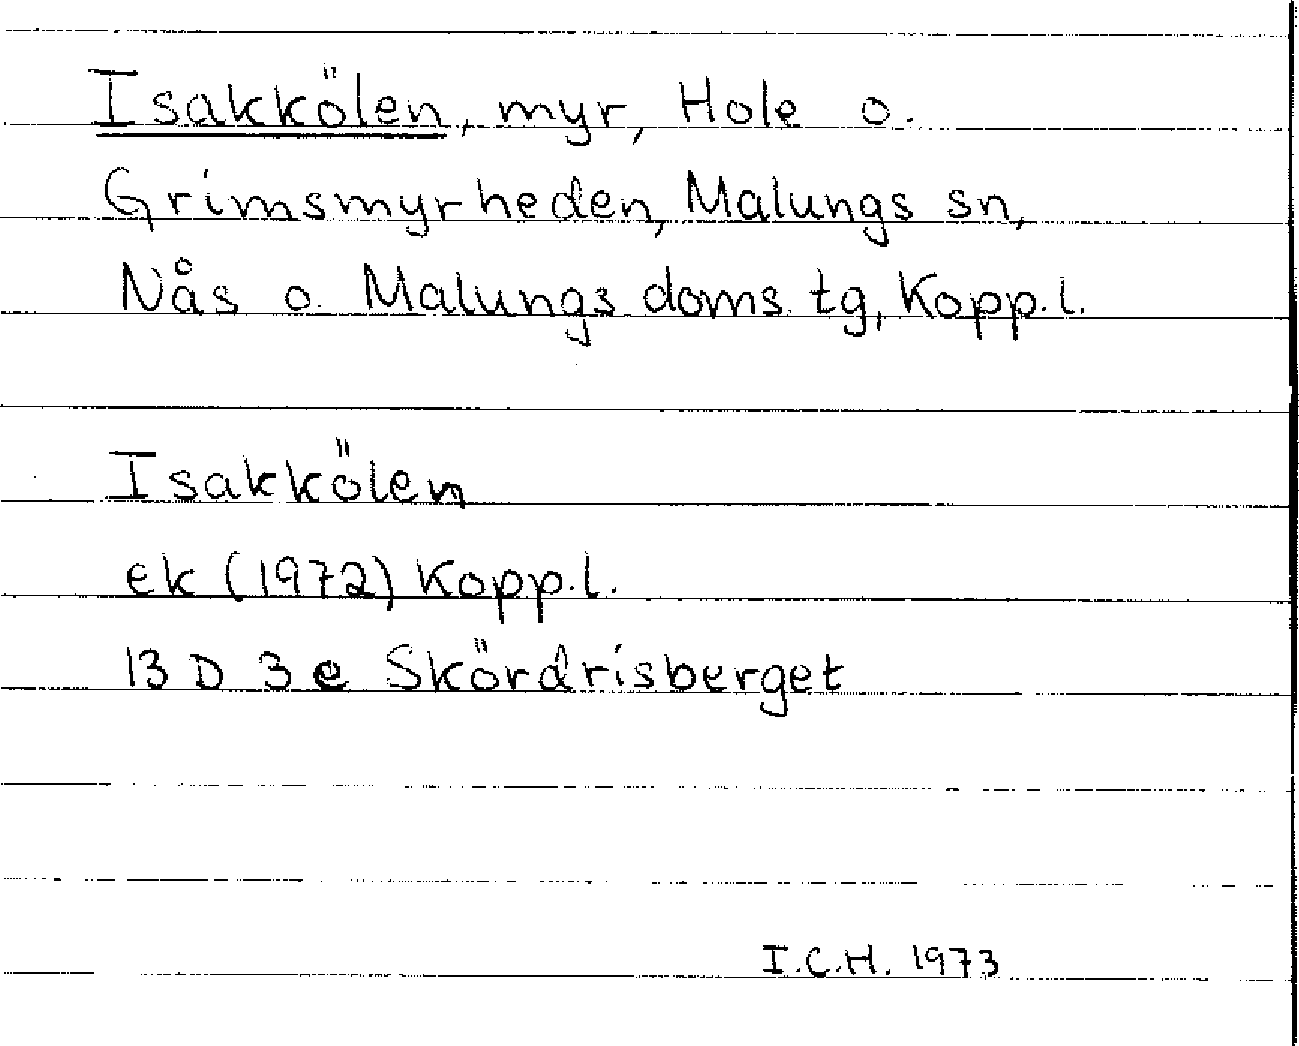 Isakkölen, myr, Hole o.
Grimsmyrheden, Malungs sn,
Nås o. Malungs doms. tg, Kopp.l.
Isakkölen
ek (1972) Kopp.l.
13 D 3 e Skördrisberget
I.C.H. 1973